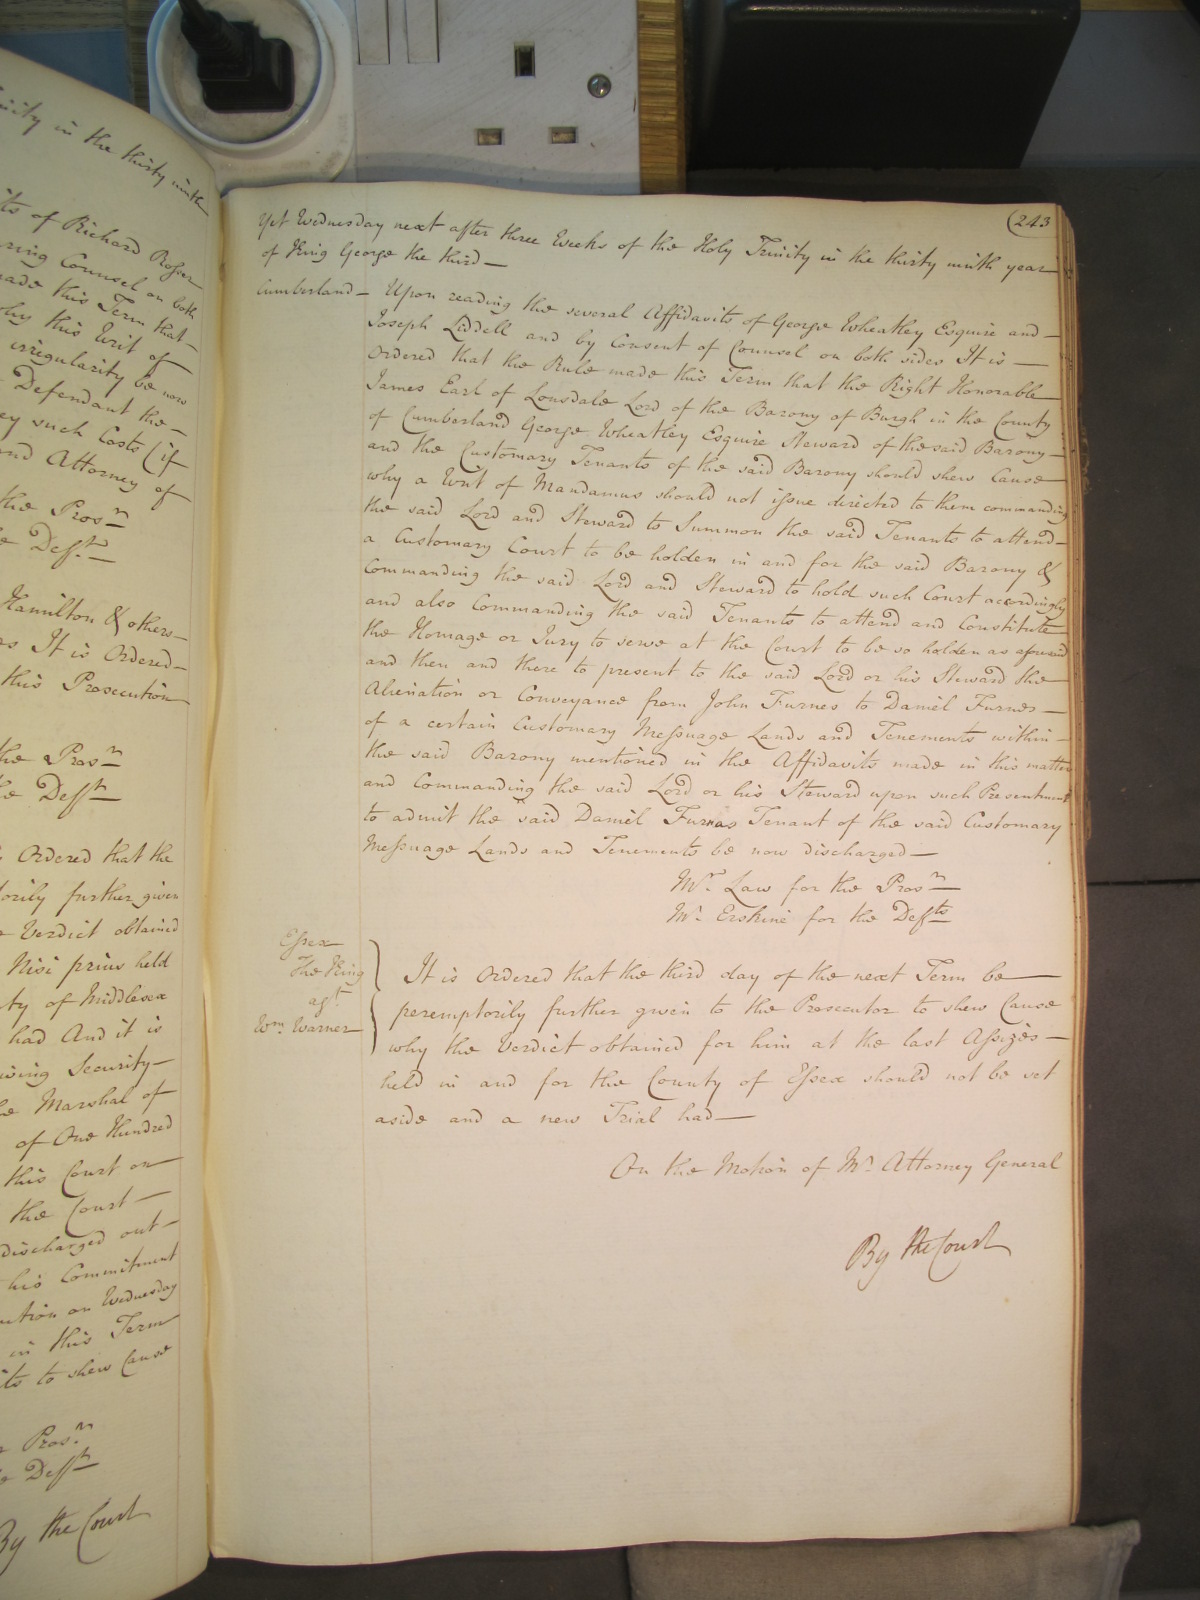 inity in the thirty ninth
its of Richard Rosser
rring Counsel on both
made this Term that
why this Writ of
irregularity be now
Defendant the
ey such Costs (if
and Attorney of
the Prosr
e Defts
Hamilton & others
es It is Ordered
this Prosecution
the Prosr
he Deft
Ordered that the
torily further given
e Verdict obtained
Nisi prius held
ty of Middlesex
had And it is
iving Security
he Marshal of
of One Hundred
this Court on
the Court
discharged out
his Commitment
ution on Wednesday
in this Term
its to shew Cause
Prosr
e Deft
By the Court
(243
Yet Wednesday next after three Weeks of the Holy Trinity in the thirty ninth year
of King George the third
Cumberland Upon reading the several Affidavits of George Wheatley Esquire and
Joseph Liddell and by Consent of Counsel on both sides It is
Ordered that the Rule made this Term that the Right Honorable
James Earl of Lonsdale Lord of the Barony of Burgh in the County
of Cumberland George Wheatley Esquire Steward of the said Barony
and the Customary Tenants of the said Barony should shew Cause
why a Writ of Mandamus should not issue directed to them commanding
the said Lord and Steward to Summon the said Tenants to attend
a Customary Court to be holden in and for the said Barony &
Commanding the said Lord and Steward to hold such Court accordingly
and also Commanding the said Tenants to attend and Constitute
the Homage or Jury to serve at the Court to be so holden as aforesaid
and then and there to present to the said Lord or his Steward the
Alienation or Conveyance from John Furnes to Daniel Furnes
of a certain Customary Messuage Lands and Tenements within
the said Barony mentioned in the Affidavits made in this matter
and Commanding the said Lord or his Steward upon such Presentment
to admit the said Daniel Furnes Tenant of the said Customary
Messuage Lands and Tenements be now discharged
Mr. Law for the Prosr
Mr. Erskine for the Defts
Essex
The King
agt
Wm. Warner
It is Ordered that the third day of the next Term be
peremptorily further given to the Prosecutor to shew Cause
why the Verdict obtained for him at the last Assizes
held in and for the County of Essex should not be set
aside and a new Trial had
On the Motion of Mr. Attorney General
By the Court